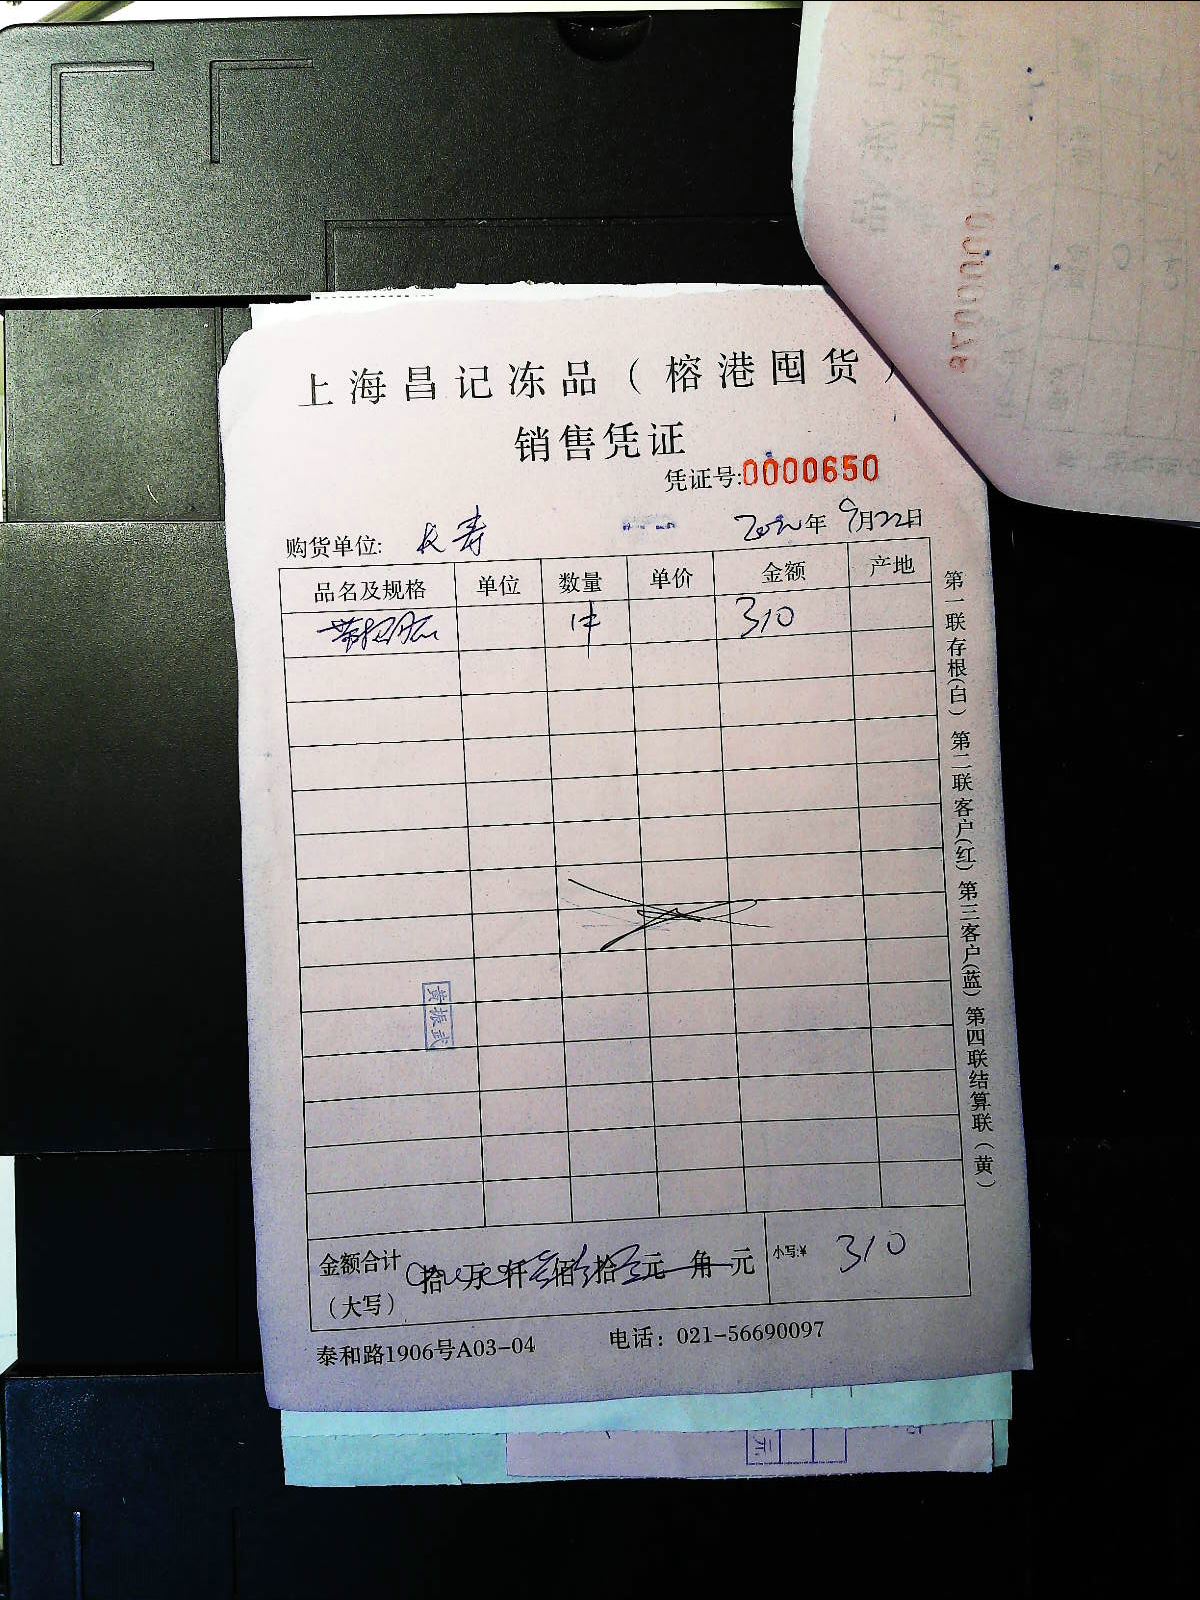 上海昌记冻品（榕港囤货）
销售凭证
凭证号:0000650
购货单位: 长寿 年 9月22日
品名及规格 单位 数量 单价 金额 产地
1件 310
黄振武
金额合计 拾 万 仟 佰 拾 元 角 元 小写:¥ 310
（大写）
泰和路1906号A03-04 电话：021-56690097
第一联存根(白) 第二联客户(红) 第三客户(蓝) 第四联结算联(黄)